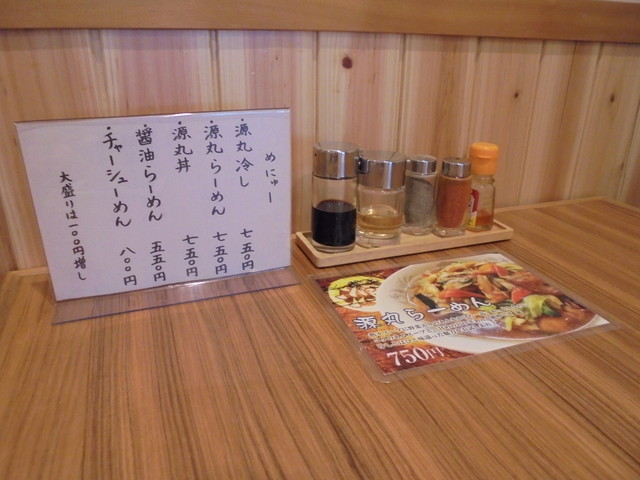 めにゅー
・源丸冷し 七五0円
・源丸らーめん 七五0円
・源丸丼 七五0円
・醤油らーめん 五五0円
・チャーシューめん 八00円
大盛りは一00円増し
源丸らーめん
750円